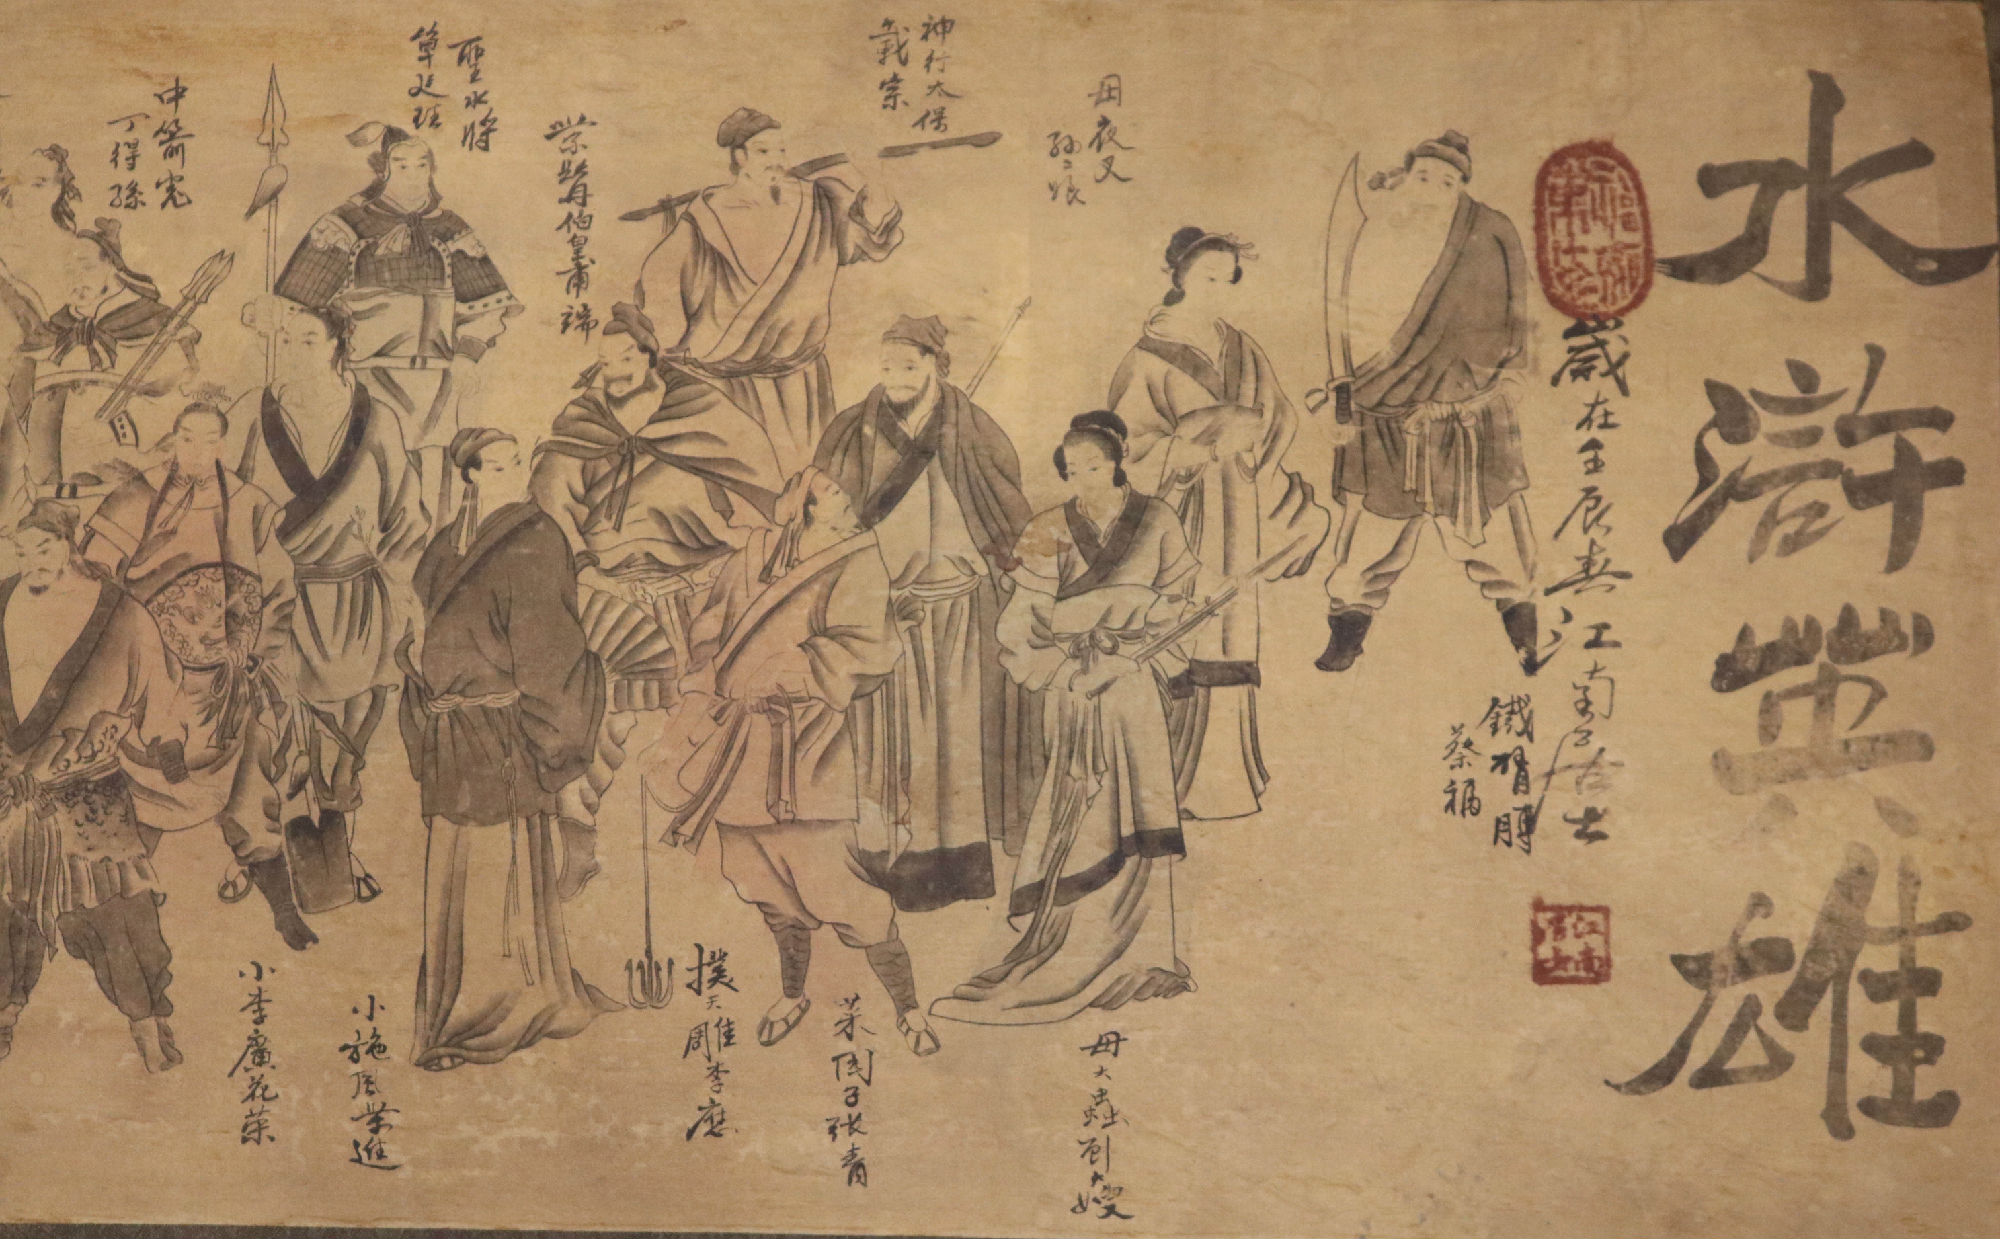 水滸英雄
歲在壬辰春江南居士
鐵臂膊
蔡福
母夜叉
孫二娘
母大蟲劉大嫂
神行太保
戴宗
菜園子張青
撲天雕李應
紫髯伯皇甫端
聖水將
單廷珪
小旋風柴進
小李廣花榮
中箭虎
丁得孫